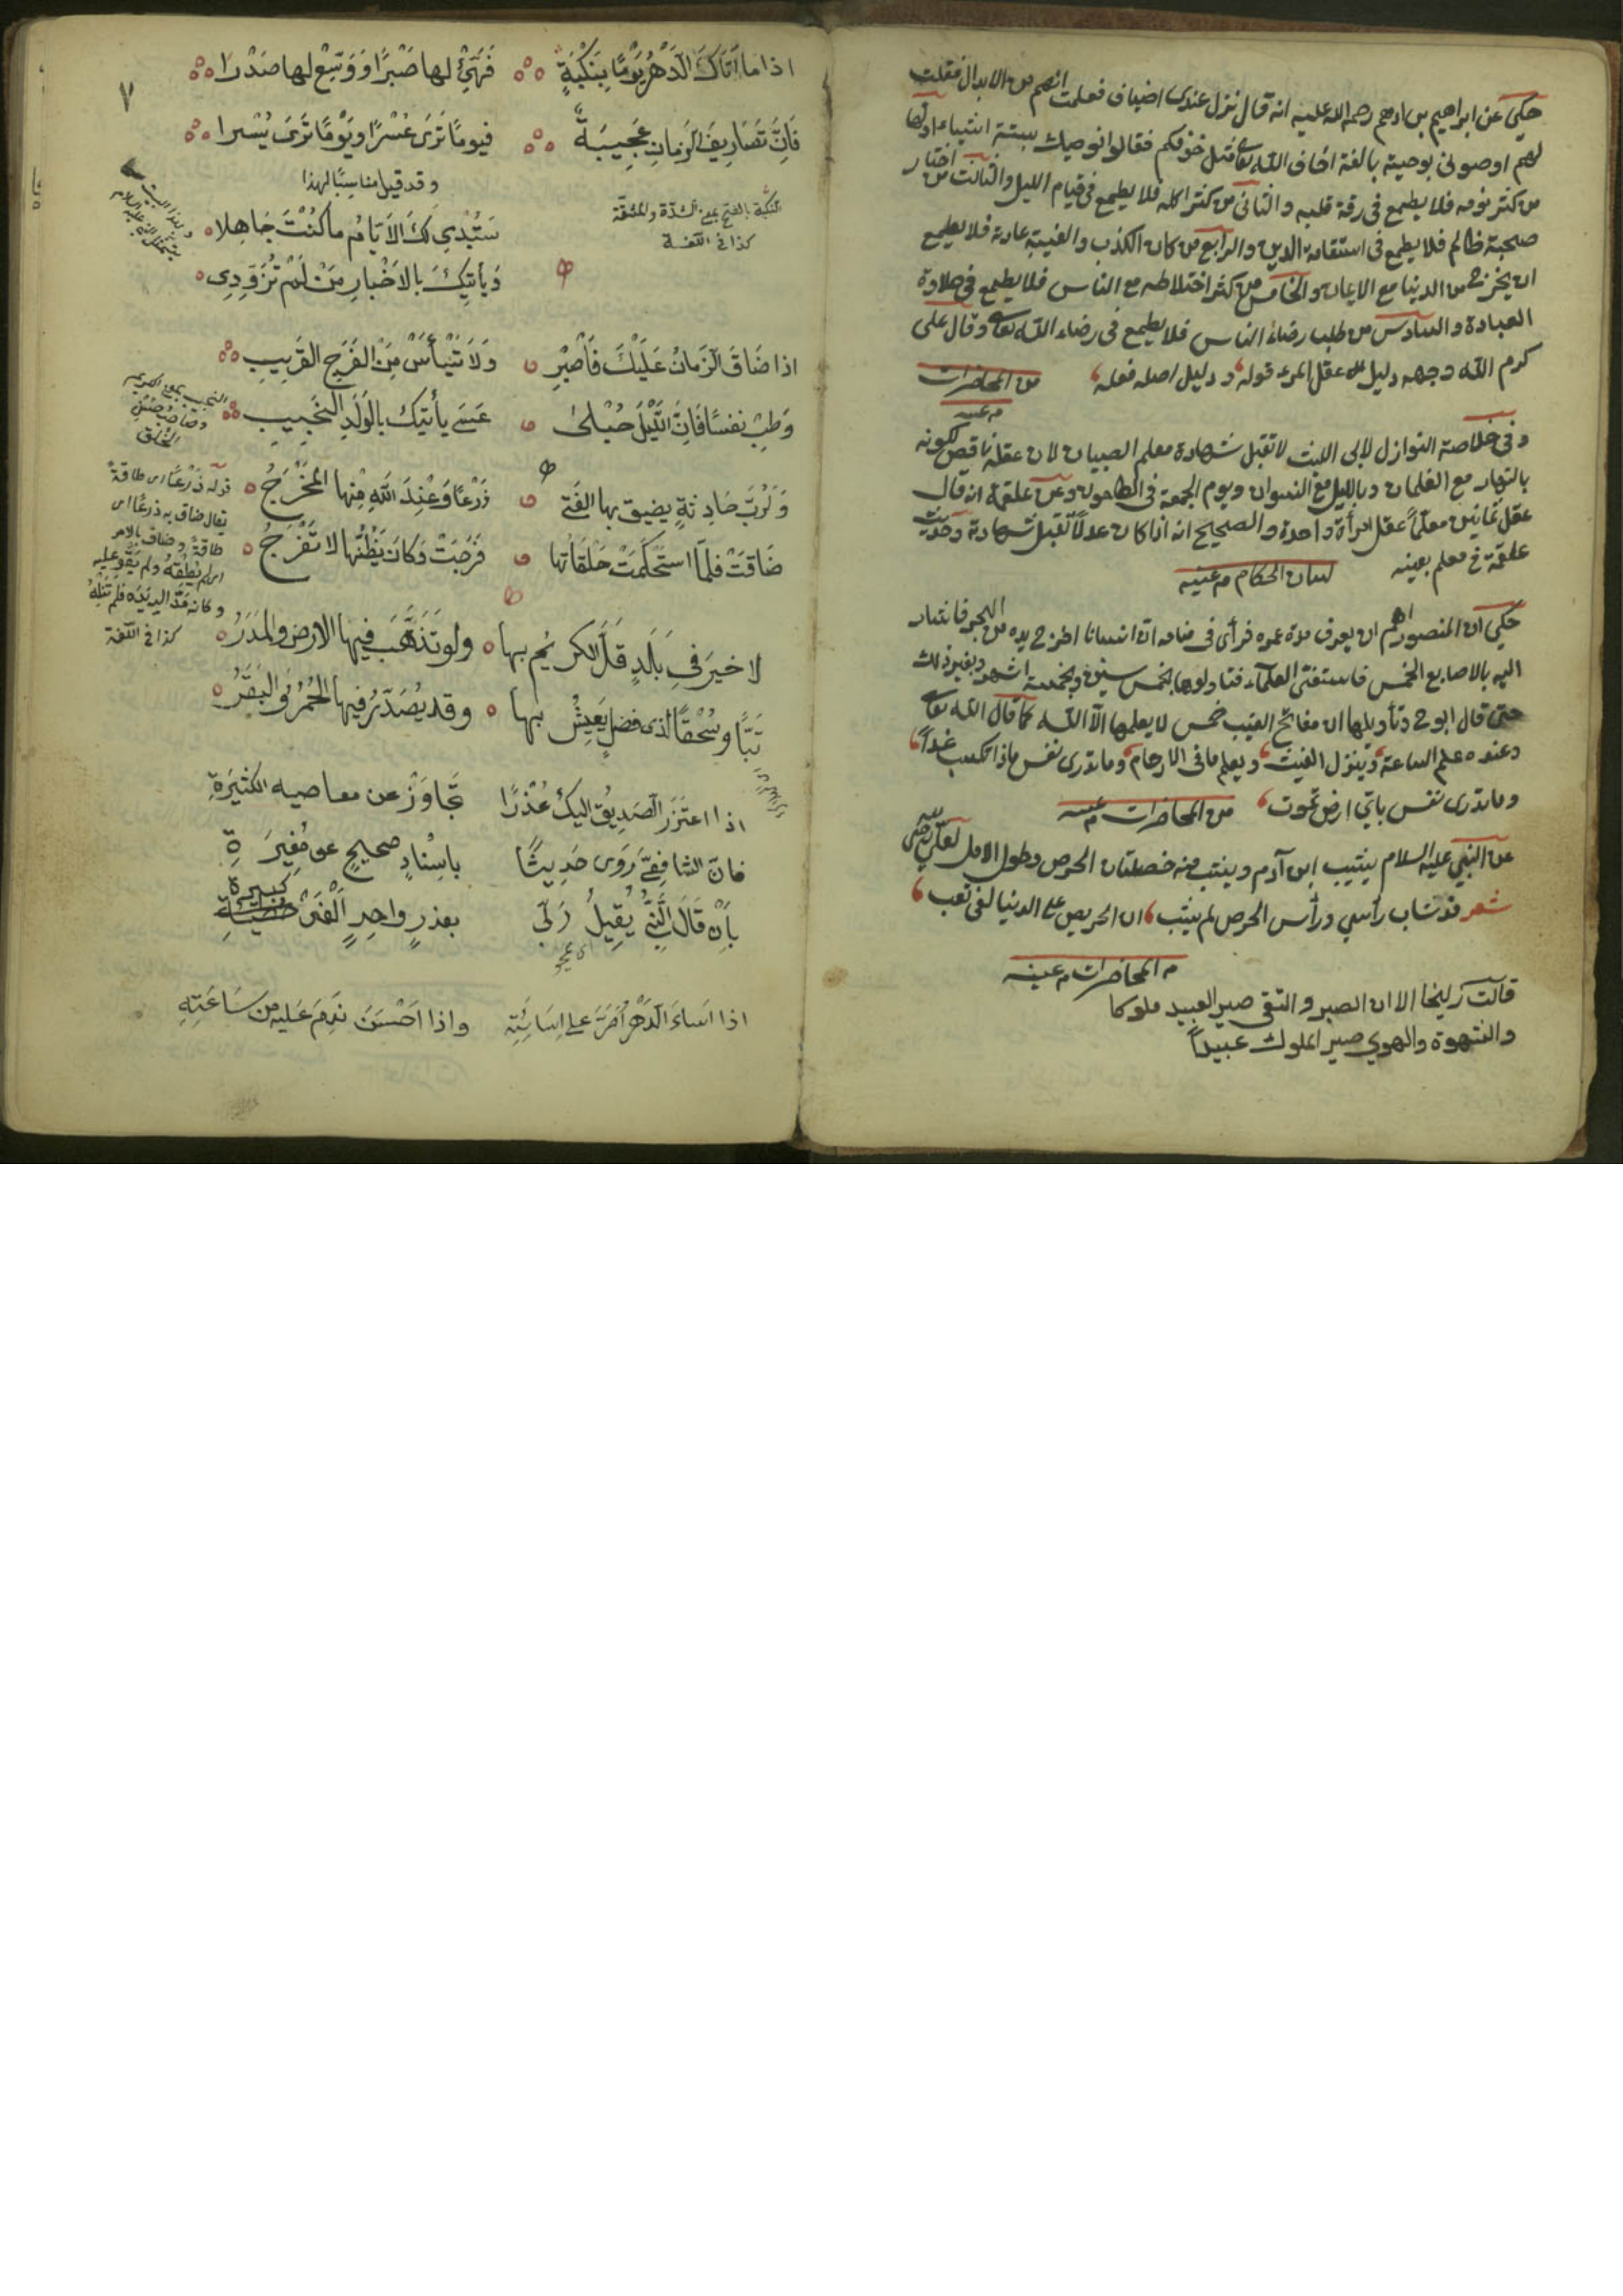 حكي عن ابراهيم بن ادهم رحمه الله عليه انه قال نزل عندى اضياف فعلمت انهم من الابدال فقلت
لهم اوصونى بوصية بالغة اخاف الله تعالى مثل خوفكم فقالوا نوصيك بستة اشياء اولها
من كثر نومه فلا يطمع فى رقة قلبه والثانى من كثر اكله فلا يطمع فى قيام الليل والثالث من اختار
صحبة ظالم فلا يطمع فى استقامة الدين والرابع من كان الكذب والغيبة عادته فلا يطمع
ان يخرج من الدنيا مع الايمان والخامس من كثر اختلاطه مع الناس فلا يطمع فى حلاوة
العبادة والسادس من طلب رضاء الناس فلا يطمع فى رضاء الله تعالى وقال على
كرم الله وجهه دليل عقل المرء قوله ودليل اصله فعله من المحاضرات
م عينه
وفى خلاصة النوازل لابى الليث لا تقبل شهادة معلم الصبيان لان عقله ناقص لكونه
بالنهار مع الغلمان وبالليل مع النسوان ويوم الجمعة فى الطاحون وعن علقمة انه قال
عقل ثمانين معلماً عقل امرأة واحدة والصحيح انه اذا كان عدلاً تقبل شهادته وحديث
علقمة فى معلم بعينه لسان الحكام م عينه
حكي ان المنصور اهم ان يعرف مدة عمره فرأى فى منامه ان انسانا اخرج يده من البحر فاشار
اليه بالاصابع الخمس فاستفتى العلماء فتاولوها بخمس سنين وبخمسة اشهر وبغير ذلك
حتى قال ابو ح تأويلها ان مفاتح الغيب خمس لا يعلمها الا الله كما قال الله تعالى
وعنده علم الساعة وينزل الغيث ويعلم ما فى الارحام وما تدرى نفس ماذا تكسب غداً
وما تدرى نفس باي ارض تموت من المحاضرات م عينه
عن النبي عليه السلام يشيب ابن آدم ويشب منه خصلتان الحرص وطول الامل
شعر قد شاب رأسي ورأس الحرص لم يشب ان الحريص على الدنيا لفى تعب
م المحاضرات م عينه
قالت زليخا الا ان الصبر والتقى صير العبيد ملوكا
والشهوة والهوي صير الملوك عبيداً
٧
اذا ما اَتَاكَ الدَّهْرُ يَوْمًا بِنَكْبَةٍ فَهَيِّئْ لها صَبْرًا وَوَسِّعْ لها صَدْرَا
فَاِنَّ تَصَارِيفَ الزَّمانِ عَجِيبَةٌ فيومًا تَرَى عُسْرًا ويَوْمًا تَرَى يُسْرا
وقد قيل مناسبًا لهذا
النكبة بالفتح بمعنى الشدّة والمشقّة
كذا فى اللغة
سَتُبْدِي لكَ الاَيّامُ ما كُنْتَ جَاهِلا
وَيأتِيكَ بالاَخْبارِ مَنْ لَمْ تُزَوِّدِى
اذا ضَاقَ الزَّمانُ عَلَيْكَ فَاصْبِرْ وَلاَ تَيْأَسْ مِنَ الفَرَجِ القَرِيبِ
وَطِبْ نفسًا فَاِنَّ اللَّيْلَ حُبْلىٰ عَسَى يأتيكَ بالوَلَدِ النَّجِيبِ
النجيب بمعنى الكريم
وصاحب حُسْنِ
الخُلق
وَلَرُبَّ حَادِثةٍ يضيق بها الفَتى ذَرْعًا وَعِنْدَ اللهِ مِنْها المَخْرَجُ
ضَاقَتْ فلمّا اسْتَحْكَمَتْ حَلْقَاتُها فُرِجَتْ وَكانَ يَظُنُّها لا تُفْرَجُ
قوله ذَرْعًا اى طاقةً
يقال ضاق به ذرعًا اى
طاقةً وضاق بالامر
اى لم يُطِقْهُ ولم يَقْوِ عليه
وكانه مَدَّ اليه يَدَه فلم تَنَلْهُ
كذا فى اللغة
لا خيرَ فى بَلَدٍ قَلَّ الكريم بها ولو تَذَهَّبَ فيها الارض والمَدَرُ
تَبًّا وسُحْقًا لذى فضلٍ يَعِيشُ بها وقد يُصَدَّرُ فيها الحُمُرُ والبَقَرُ
اذا اعتَذَرَ الصَّدِيقُ اليكَ عُذْرًا تَجَاوَزْ عن معاصيه الكثيرَةِ
فانّ الشافِعِيَّ رَوَى حَدِيثًا باسْنادٍ صحيحٍ عن مُغِيرَةِ
بأنْ قَالَ النَّبِيُّ يُقِيلُ رَبِّي بعذرٍ واحِدٍ اَلْفَيْ كبيرة
اى يمحو
اذا اَساءَ الدَّهْرُ اَصَرَّ على اِسَائَتِهِ واذا اَحْسَنَ نَدِمَ عَليه من سَاعَتِهِ